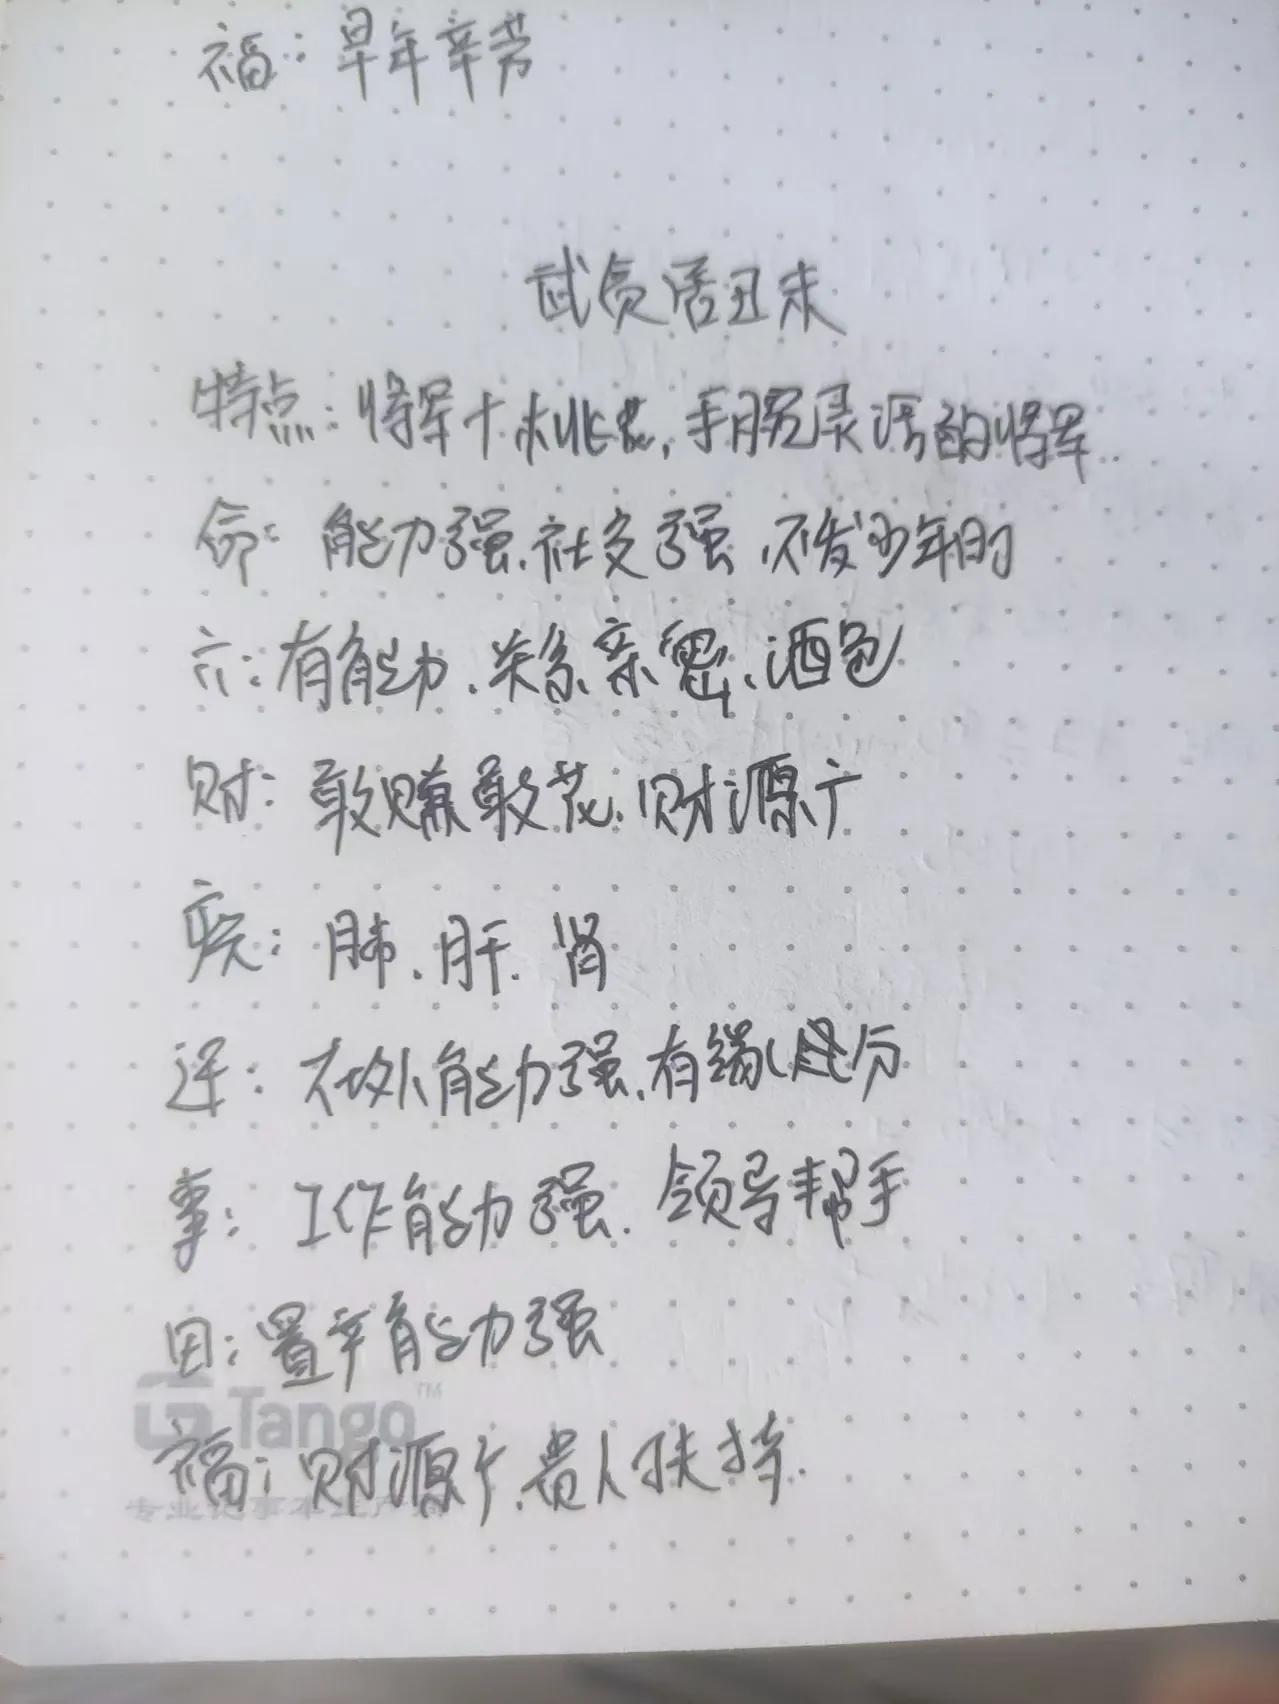 福：早年辛劳
武贪居丑未
特点：将军十桃花，手腕灵活的将军..
命：能力强、社交强、不发少年时
六：有能力、关系亲密、酒色
财：敢赚敢花、财源广
疾：肺、肝、肾
迁：在外能力强、有缘分
事：工作能力强、领导帮手
田：置产能力强
Tango™
福：财源广、贵人扶持